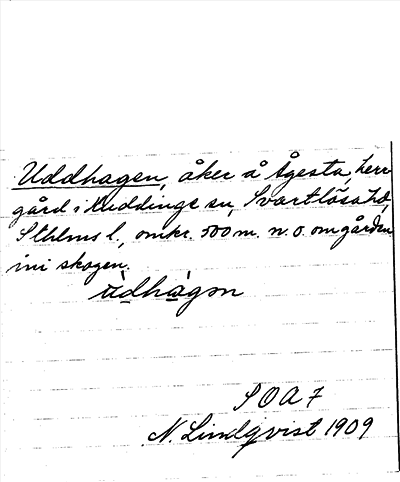 Uddhagen, åker å Ågesta, herr
gård i Huddinge sn, Svartlösa hd,
Sthlms l, omkr. 500 m. n. o. om gården
ini skogen.
S O A 7
N. Lindqvist 1909